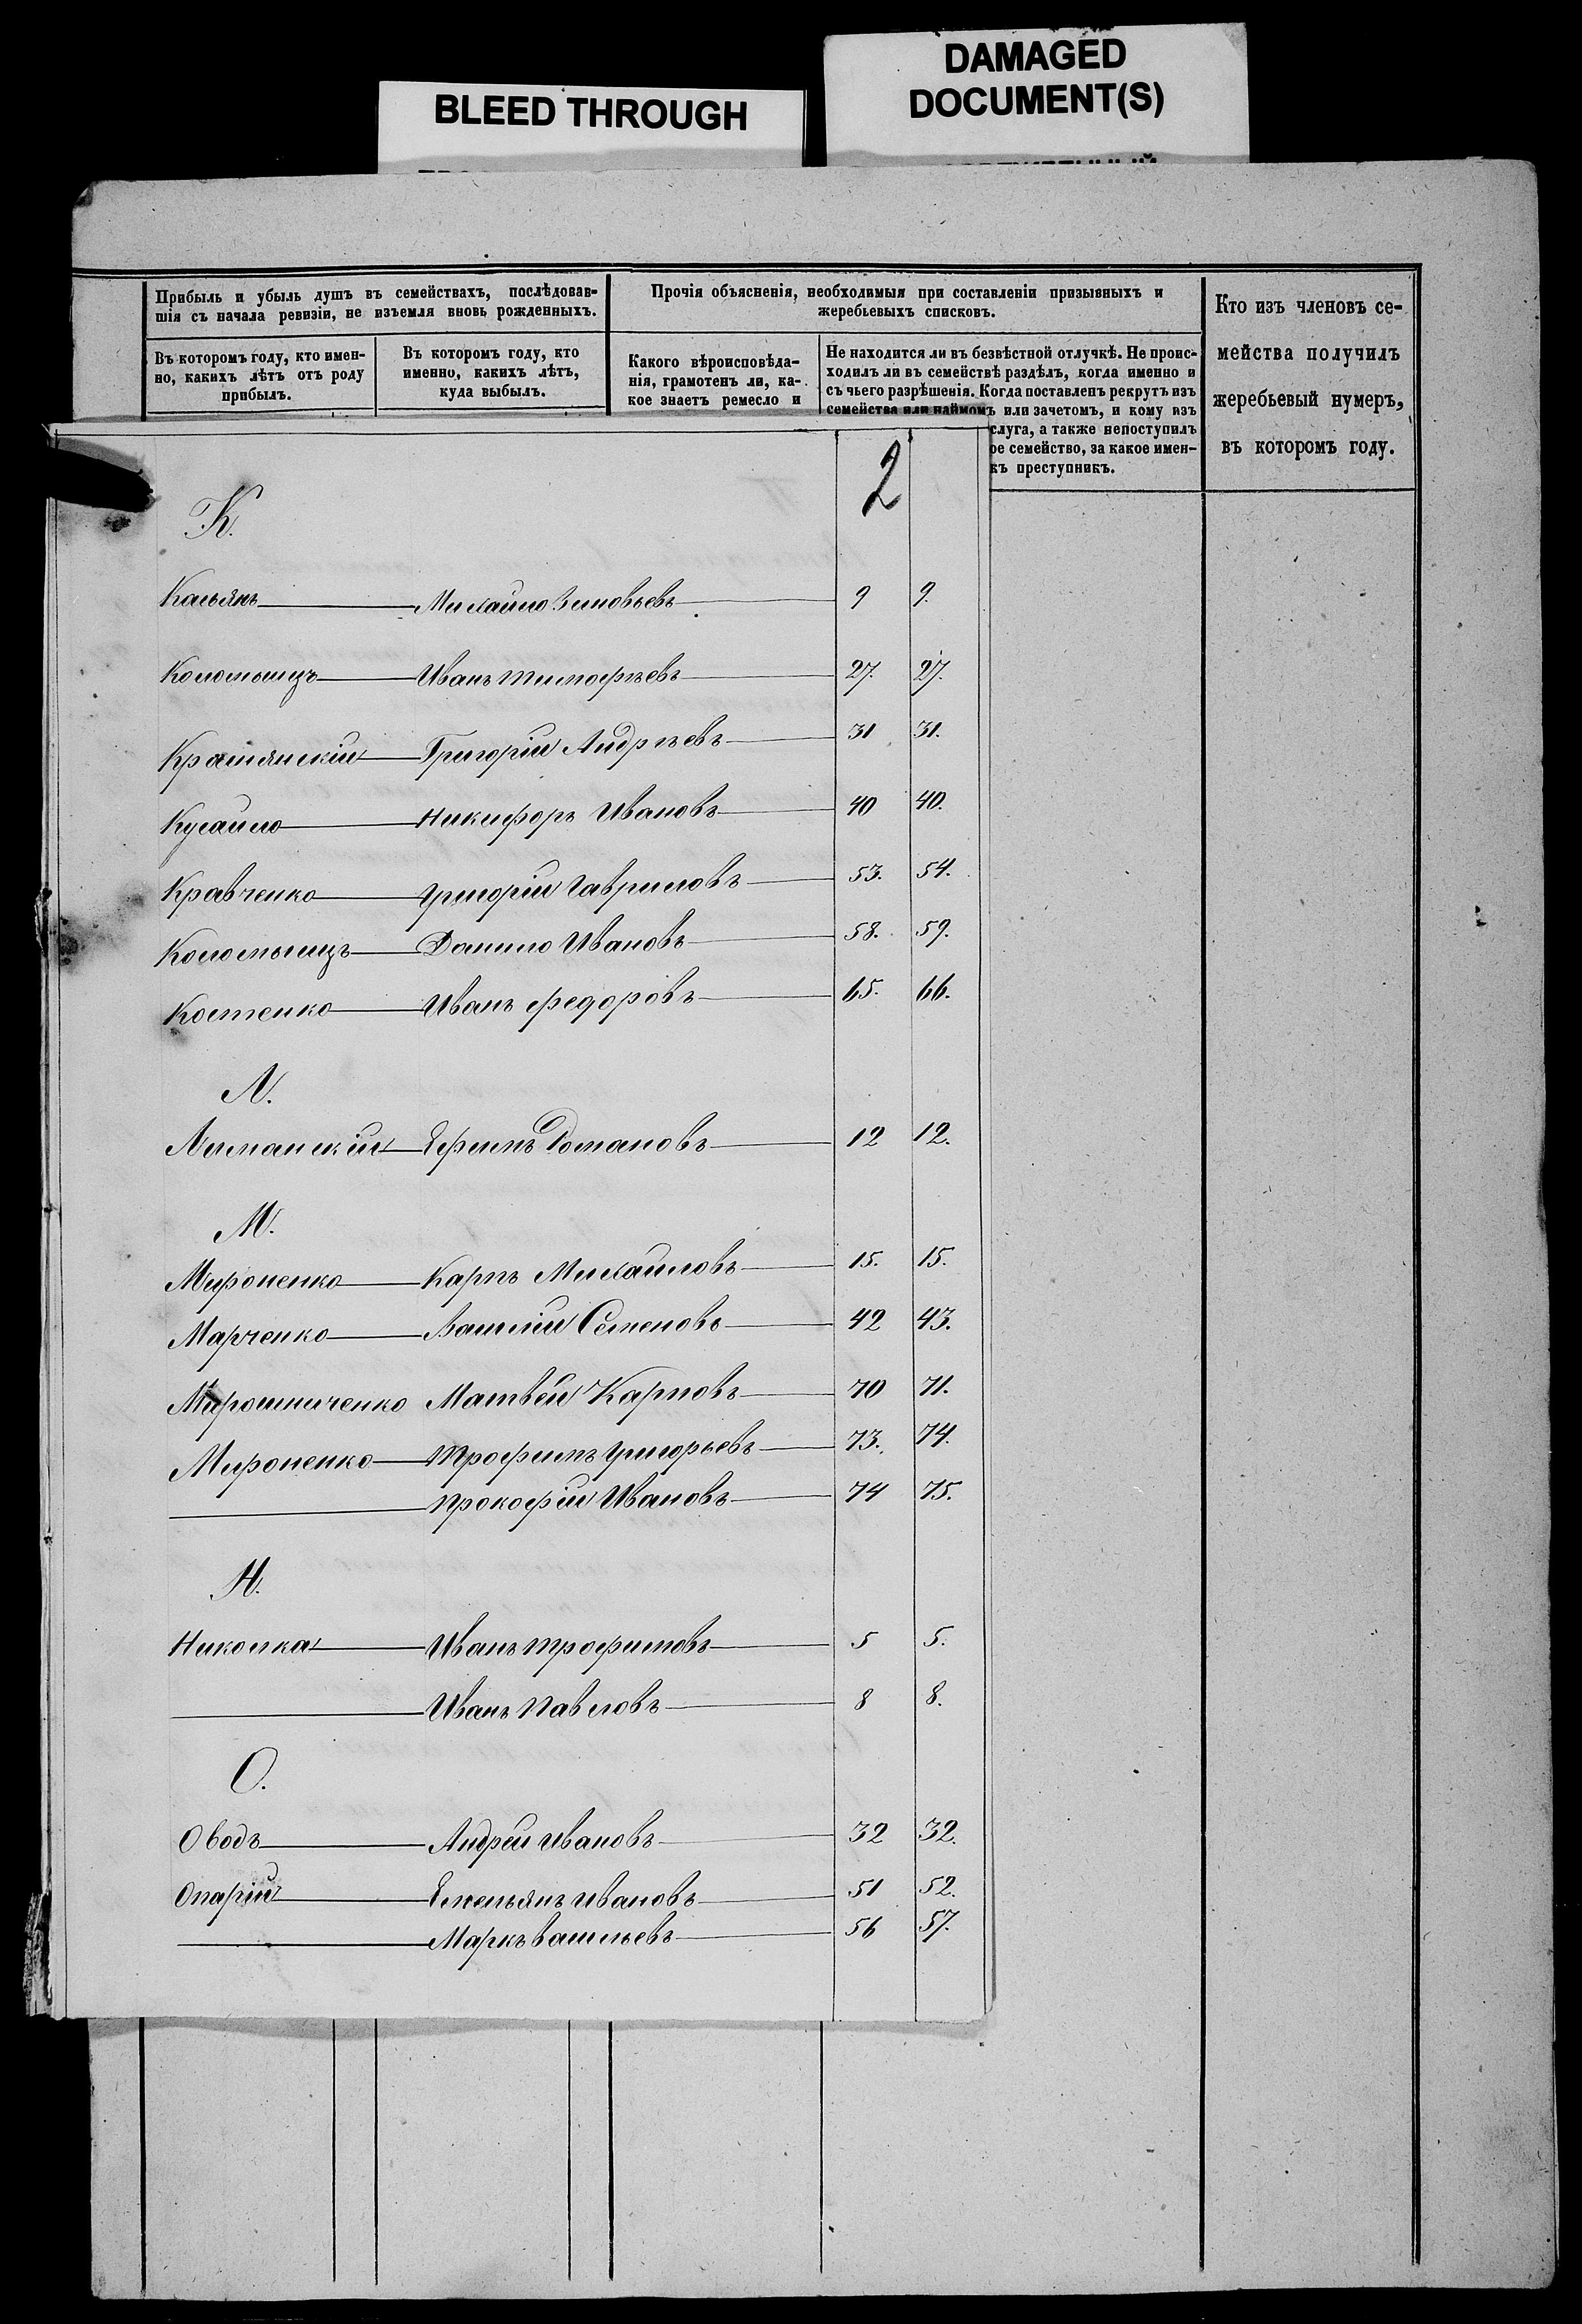 BLEED THROUGH
DAMAGED
DOCUMENT(S)
Прибыль и убыль душъ въ семействахъ, послѣдовав-
шія съ начала ревизіи, не изъемля вновь рожденныхъ.
Въ которомъ году, кто имен-
но, какихъ лѣтъ отъ роду
прибылъ.
Въ которомъ году, кто
именно, какихъ лѣтъ,
куда выбылъ.
Прочія объясненія, необходимыя при составленіи призывныхъ и
жеребьевыхъ списковъ.
Какого вѣроисповѣда-
нія, грамотенъ ли, ка-
кое знаетъ ремесло и
Не находится ли въ безвѣстной отлучкѣ. Не проис-
ходилъ ли въ семействѣ раздѣлъ, когда именно и
съ чьего разрѣшенія. Когда поставленъ рекрутъ изъ
семейства или наймомъ или зачетомъ, и кому изъ
слуга, а также непоступилъ
ое семейство, за какое имен-
къ преступникъ.
Кто изъ членовъ се-
мейства получилъ
жеребьевый нумеръ,
въ которомъ году.
2
К.
Касьянъ Михайло Зиновьевъ 9 9.
Коломыецъ Иванъ Тимофѣевъ 27. 27.
Григорій Андрѣевъ 31 31.
Никифоръ Ивановъ 40 40.
Кравченко Григорій Гавриловъ 53. 54.
Коломыецъ Данило Ивановъ 58. 59.
Костенко Иванъ Федоровъ 65. 66.
Л.
Лиманскій Ефимъ Романовъ 12 12.
М.
Мироненко Карпъ Михайловъ 15. 15.
Марченко Василій Семеновъ 42 43.
Мирошниченко Матвѣй Карповъ 70 71.
Мироненко Трофимъ Григорьевъ 73. 74.
Прокофій Ивановъ 74 75.
Н.
Николка Иванъ Трофимовъ 5 5.
Иванъ Павловъ 8 8.
О.
Оводъ Андрей Ивановъ 32 32.
Опарій Емельянъ Ивановъ 51 52.
Маркъ Васильевъ 56 57.